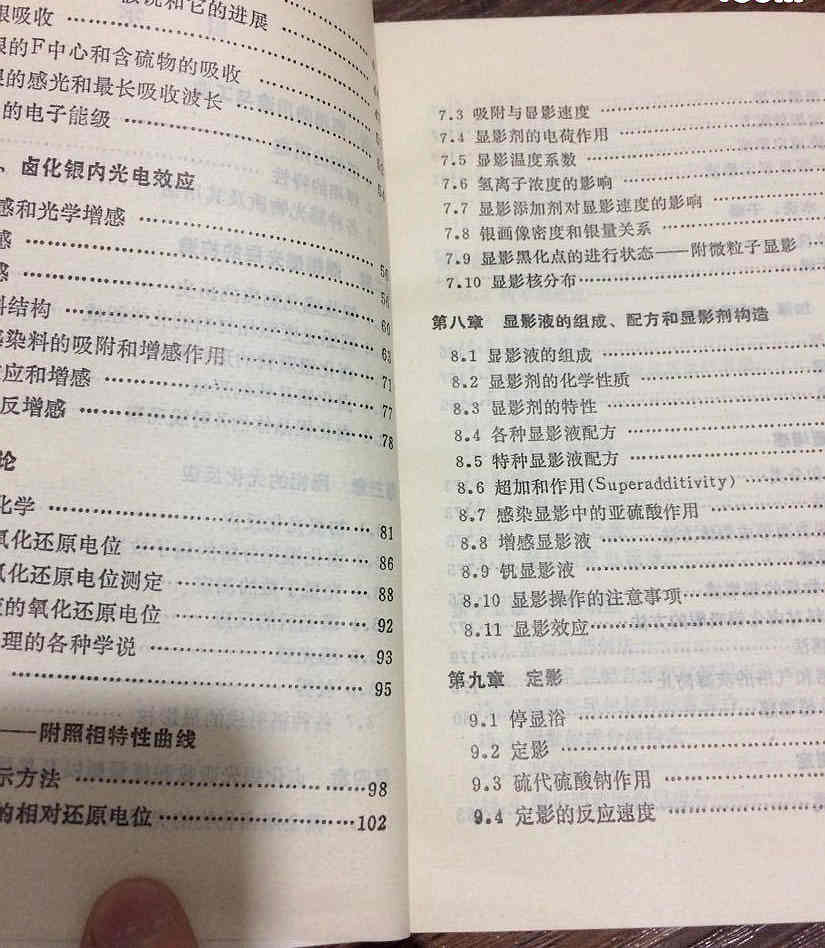 和它的进展
吸收
的F中心和含硫物的吸收
的感光和最长吸收波长
的电子能级
、卤化银内光电效应
感和光学增感
感 56
感 58
料结构 60
染料的吸附和增感作用 63
应和增感 71
反增感 77
78
论
化学 81
氧化还原电位 86
氧化还原电位测定 88
的氧化还原电位 92
理的各种学说 93
95
——附照相特性曲线
示方法 98
的相对还原电位 102
7.3 吸附与显影速度
7.4 显影剂的电荷作用
7.5 显影温度系数
7.6 氢离子浓度的影响
7.7 显影添加剂对显影速度的影响
7.8 银画像密度和银量关系
7.9 显影黑化点的进行状态——附微粒子显影
7.10 显影核分布
第八章 显影液的组成、配方和显影剂构造
8.1 显影液的组成
8.2 显影剂的化学性质
8.3 显影剂的特性
8.4 各种显影液配方
8.5 特种显影液配方
8.6 超加和作用(Superadditivity)
8.7 感染显影中的亚硫酸作用
8.8 增感显影液
8.9 钒显影液
8.10 显影操作的注意事项
8.11 显影效应
第九章 定影
9.1 停显浴
9.2 定影
9.3 硫代硫酸钠作用
9.4 定影的反应速度